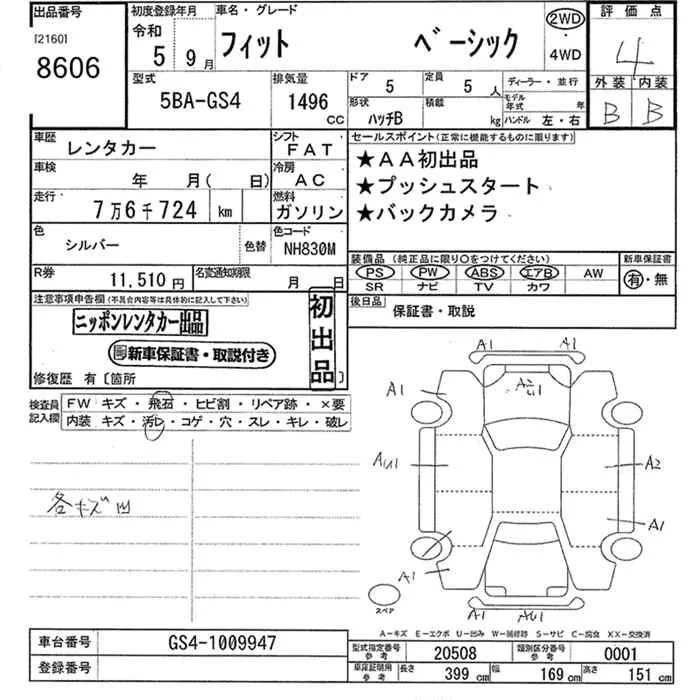 出品番号
[2160]
8606
初度登録年月
令和
5 9月
車名・グレード
フィット ベーシック
2WD
・
4WD
評価点
4
外装 内装
B B
型式
5BA-GS4
排気量
1496
CC
ドア
5
定員
5 人
ディーラー・並行
形状
ハッチB
積載
kg
モデル年式 年
ハンドル 左・右
車歴
レンタカー
シフト
FAT
車検
年 月( 日)
冷房
AC
走行
7万6千724 km
燃料
ガソリン
色
シルバー
色替
色コード
NH830M
R券
11,510円
名変通知期限
月 日
セールスポイント(正常に機能するものに限ります)
★AA初出品
★プッシュスタート
★バックカメラ
装備品(純正品に限り○をつけてください)
PS PW ABS エアB AW
SR ナビ TV カワ
新車保証書
有・無
後日品
保証書・取説
注意事項申告欄(不具合内容等は具体的に記入して下さい)
ニッポンレンタカー出品
新車保証書・取説付き
初出品
修復歴 有〔箇所 〕
検査員記入欄
FW キズ・飛石・ヒビ割・リペア跡・×要
内装 キズ・汚レ・コゲ・穴・スレ・キレ・破レ
各キズ凹
A1 A1
A1
A1
AU1
A2
A1
A1
A1 AU1
スペア
A−キズ E−エクボ U−凹み W−補修跡 S−サビ C−腐食 XX−交換済
車台番号
GS4-1009947
登録番号
型式指定番号
参考
20508
類別区分番号
参考
0001
車庫証明用
参考
長さ
399 cm
幅
169 cm
高さ
151 cm